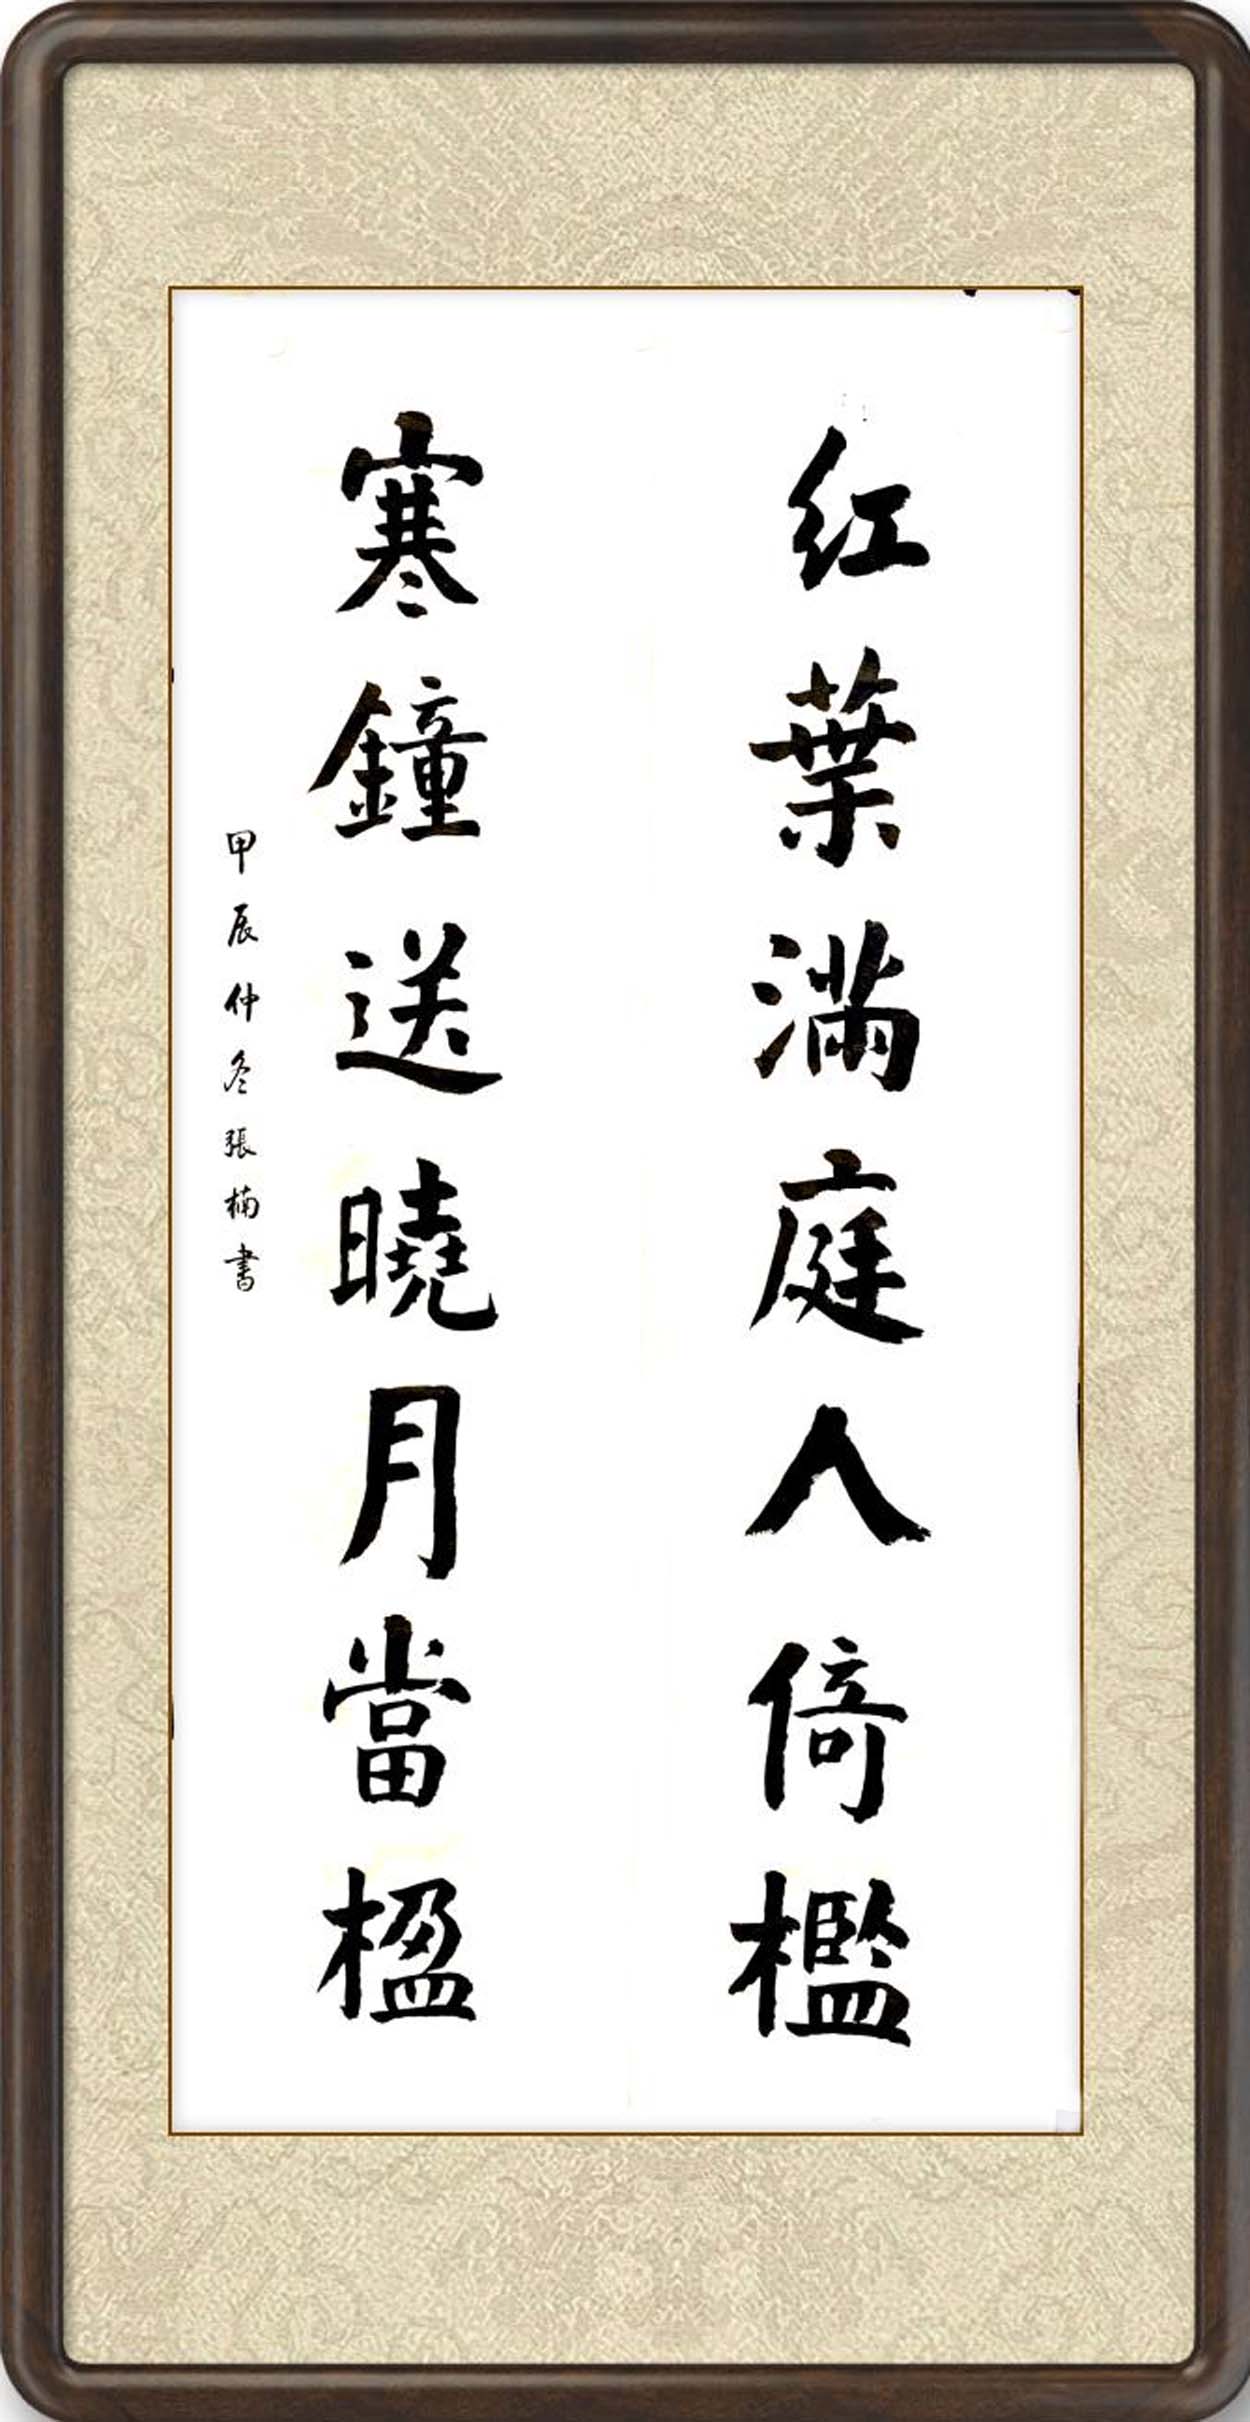 红葉滿庭人倚檻
寒鐘送曉月當楹
甲辰仲冬張楠書